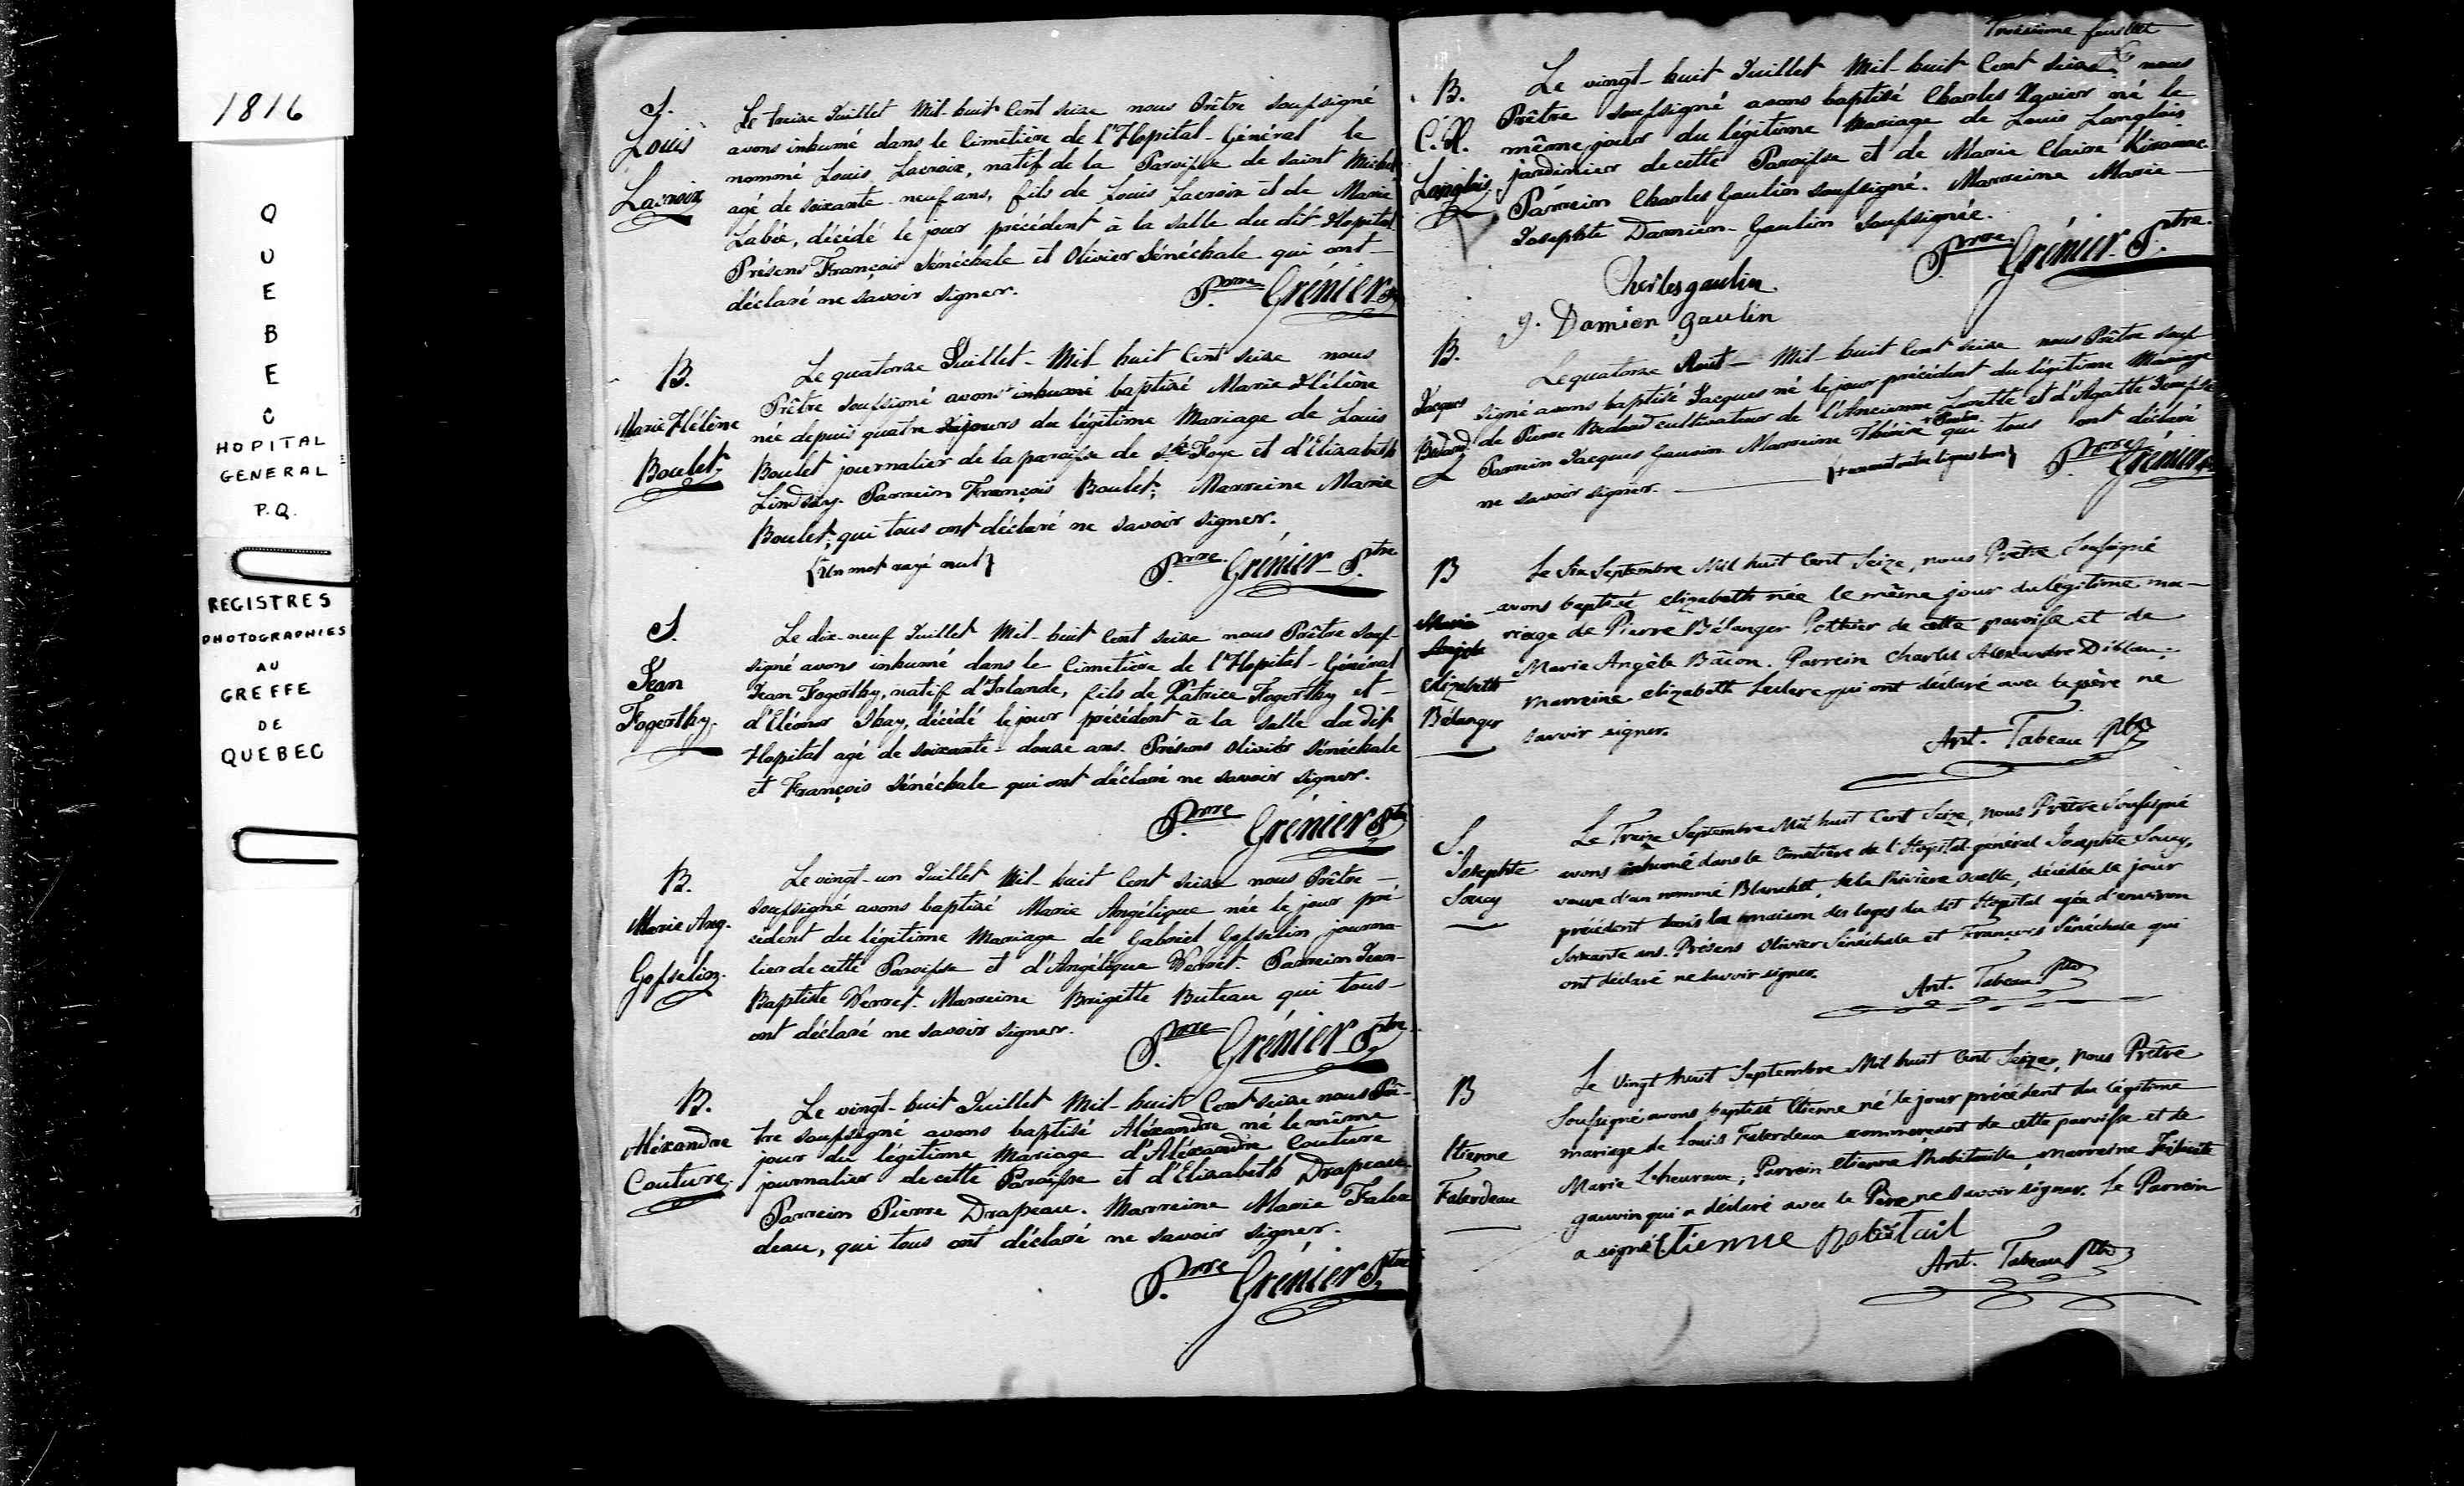 1816
QUEBEC
HOPITAL
GENERAL
P.Q.
REGISTRES
PHOTOGRAPHIES
AU
GREFFE
DE
QUEBEC
S.
Louis
Lacroix
Le treize Juillet Mil-huit Cent seize nous Prêtre soussigné
avons inhumé dans le Cimetière de l'Hopital-Général le
nommé Louis Lacroix, natif de la Paroisse de saint Michel
agé de soixante-neuf ans, fils de Louis Lacroix et de Marie
Labée, décédé le jour précédent à la salle du dit-Hopital
Présens François Sénéchale et Olivier Sénéchale qui ont
déclaré ne savoir signer.
Prre. Grénier Ptre
B.
Marie Hélène
Boulet
Le quatorze Juillet-Mil-huit Cent seize nous
Prêtre soussigné avons inhumé baptisé Marie Hélène
née depuis quatre jours du légitime Mariage de Louis
Boulet journalier de la paroisse de Ste Foye et d'Elizabeth
Lindsay. Parrein François Boulet; Marreine Marie
Boulet; qui tous ont déclaré ne savoir signer.
{Un mot rayé nul}
Prre. Grénier Ptre
S.
Jean
Fogerthy.
Le dix-neuf Juillet Mil-huit Cent seize nous Prêtre sous-
signé avons inhumé dans le Cimetière de l'Hopital-Général
Jean Fogerthy, natif d'Irlande, fils de Patrice Fogerthy et
d'Eléonor Shay, décédé le jour précédent à la salle du dit
Hopital agé de soixante-douze ans. Présens Olivier Sénéchale
et François Sénéchale qui ont déclaré ne savoir signer.
Prre. Grénier Ptre
B.
Marie Ang.
Gosselin.
Le vingt-un Juillet Mil-huit Cent seize nous Prêtre
soussigné avons baptisé Marie Angélique née le jour pré-
cédent du légitime Mariage de Gabriel Gosselin journa-
lier de cette Paroisse et d'Angélique Verret. Parrein Jean-
Baptiste Verret. Marreine Brigitte Buteau qui tous
ont déclaré ne savoir signer.
Prre. Grénier Ptre
B.
Aléxandre
Couture.
Le vingt-huit Juillet Mil-huit Cent seize nous Prê-
tre soussigné avons baptisé Aléxandre né le même
jour du légitime Mariage d'Aléxandre Couture
journalier de cette Paroisse et d'Elizabeth Drapeau
Parrein Pierre Drapeau. Marreine Marie Falar
deau, qui tous ont déclaré ne savoir signer.
Prre. Grénier Ptre
Troisième feuillet
B.
C. X.
Langlois
Le vingt-huit Juillet Mil-huit Cent seize nous
Prêtre soussigné avons baptisé Charles Xavier né le
même jour du légitime Mariage de Louis Langlois
jardinier de cette Paroisse et de Marie Claire
Parrein Charles Gaulin soussigné. Marreine Marie
Josephte Damien-Gaulin soussignée.
Prre. Grénier Ptre.
Charles gaulin
J. Damien gaulin
B.
Jacques
Bedard
Le quatorze Aout Mil-huit Cent seize nous Prêtre sous-
signé avons baptisé Jacques né le jour précédent du légitime Mariage
de Pierre Bedard cultivateur de l'Ancienne Lorette et d'Agathe
Parrein Jacques Gauvin Marreine Thérèse qui tous ont déclaré
ne savoir signer.
Prre Grénier Ptre
B
Marie
Angele
Elizabeth
Bélanger
Le six Septembre Mil huit Cent Seize, nous Prêtre Soussigné
avons baptisé Elizabeth née le même jour du légitime ma-
riage de Pierre Bélanger Pottier de cette paroisse et de
Marie Angèle Bâcon. Parrein Charles Alexandre
marreine elizabeth Leclerc qui ont déclaré avec le père ne
savoir signer.
Ant. Tabeau Ptre
S.
Josephte
Soucy
Le Treize Septembre Mil huit Cent Seize, nous Prêtre Soussigné
avons inhumé dans le Cimetière de l'Hopital-général Josephte Soucy,
veuve d'un nommé Blanchet, de la Rivière ouelle, décédée le jour
précédent dans la maison des loges du dit Hopital agée d'environ
soixante ans. Présens Olivier Sénéchale et François Sénéchale qui
ont déclaré ne savoir signer.
Ant. Tabeau Ptre
B
Etienne
Falerdeau
Le Vingt huit Septembre Mil huit Cent Seize, nous Prêtre
Soussigné avons baptisé Etienne né le jour précédent du légitime
mariage de Louis Falerdeau commerçant de cette paroisse et de
Marie L'heureux; Parrein Etienne Robitaille, marreine Félicité
gauvin qui a déclaré avec le Père ne savoir signer. Le Parrein
a signé Etienne Robitail
Ant. Tabeau Ptre